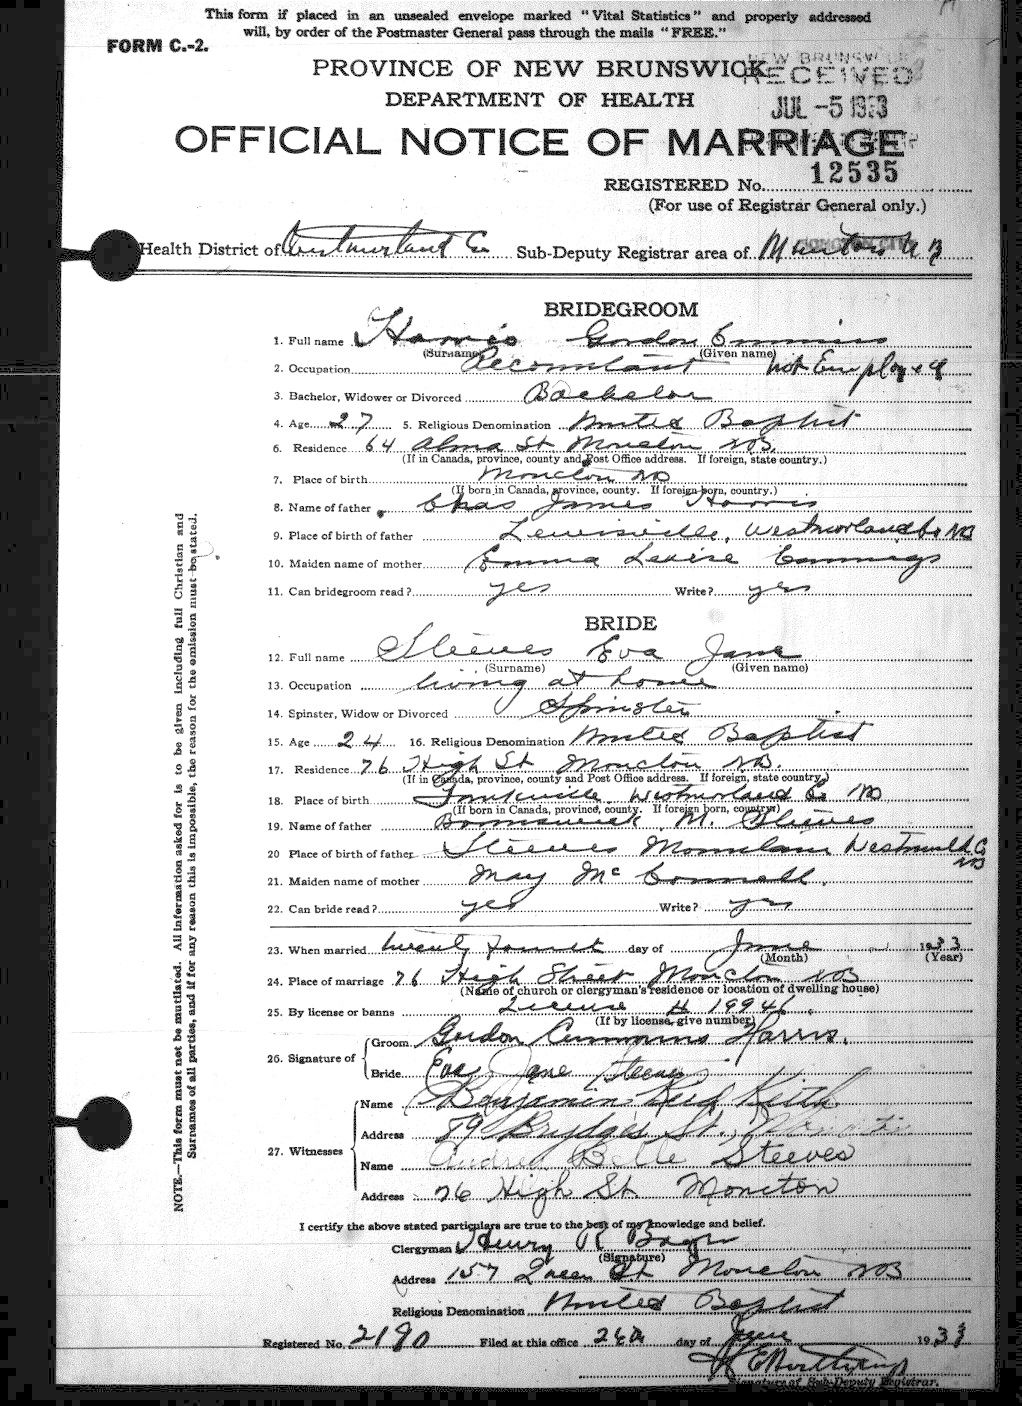 This form if placed in an unsealed envelope marked "Vital Statistics" and properly addressed
will, by order of the Postmaster General pass through the mails "FREE."
FORM C.-2.
NEW BRUNSWICK
PROVINCE OF NEW BRUNSWICK
RECEIVED
DEPARTMENT OF HEALTH
JUL -5 1933
OFFICIAL NOTICE OF MARRIAGE
REGISTERED No. 12535
(For use of Registrar General only.)
Health District of Westmorland Co. Sub-Deputy Registrar area of Moncton NB
BRIDEGROOM
1. Full name Harris Gordon Cummins
(Surname) (Given name)
2. Occupation Accountant not Employed
3. Bachelor, Widower or Divorced Bachelor
4. Age 27 5. Religious Denomination United Baptist
6. Residence 64 Alma St Moncton NB.
(If in Canada, province, county and Post Office address. If foreign, state country.)
7. Place of birth Moncton NB
(If born in Canada, province, county. If foreign born, country.)
8. Name of father Chas James Harris
9. Place of birth of father Lewisville, Westmorland Co NB
10. Maiden name of mother Emma Louise Cummings
11. Can bridegroom read? yes Write? yes
BRIDE
12. Full name Steeves Eva Jane
(Surname) (Given name)
13. Occupation living at home
14. Spinster, Widow or Divorced Spinster
15. Age 24 16. Religious Denomination United Baptist
17. Residence 76 High St Moncton NB.
(If in Canada, province, county and Post Office address. If foreign, state country.)
18. Place of birth Westmorland Co NB
(If born in Canada, province, county. If foreign born, country)
19. Name of father M. Steeves
20 Place of birth of father Steeves Mountain Westmorld. Co NB
21. Maiden name of mother May McConnell.
22. Can bride read? yes Write? yes
23. When married twenty fourth day of June 1933
(Month) (Year)
24. Place of marriage 76 High Street Moncton NB
(Name of church or clergyman's residence or location of dwelling house)
25. By license or banns License H 19946.
(If by license, give number)
26. Signature of Groom Gordon Cummins Harris.
Bride Eva Jane Steeves
27. Witnesses
Name Benjamin Reid Keith
Address 89 Brydges St. Moncton
Name Audrey Belle Steeves
Address 76 High St Moncton
I certify the above stated particulars are true to the best of my knowledge and belief.
Clergyman Henry R
(Signature)
Address 157 Queen St Moncton NB
Religious Denomination United Baptist
Registered No. 2190 Filed at this office day of June 1933
Signature of Sub-Deputy Registrar.
NOTE.—This form must not be mutilated. All information asked for is to be given including full Christian and
Surnames of all parties, and if for any reason this is impossible, the reason for the emission must be stated.